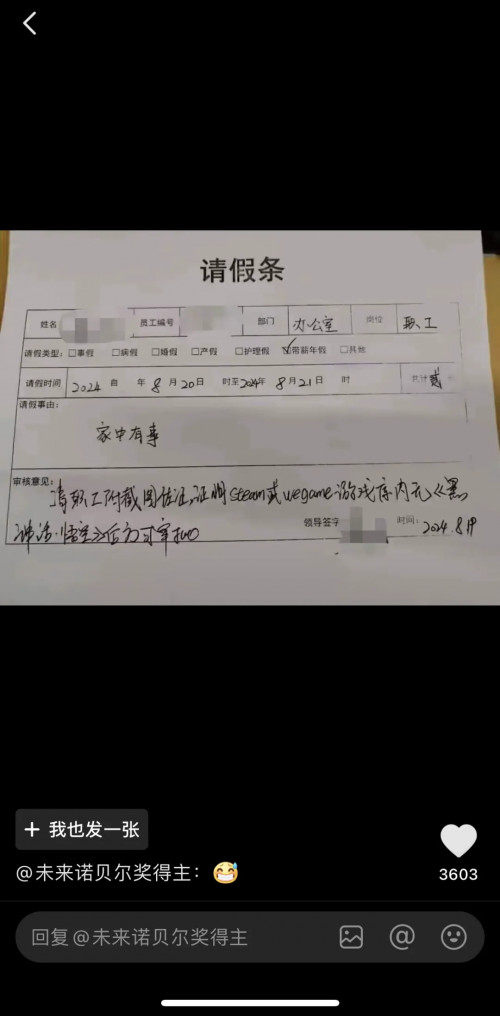 请假条
姓名 员工编号 部门 办公室 岗位 职工
请假类型: □事假 □病假 □婚假 □产假 □护理假 ☑带薪年假 □其他
请假时间 2024 自 年 8 月 20 日 时至 2024年 8 月 21 日 时 共计 贰
请假事由:
家中有事
审核意见:
请职工附截图佐证,证明steam或wegame游戏库内无《黑
神话·悟空》后方可审批
领导签字 时间: 2024.8.19
+ 我也发一张
@未来诺贝尔奖得主: 😅
3603
回复 @未来诺贝尔奖得主